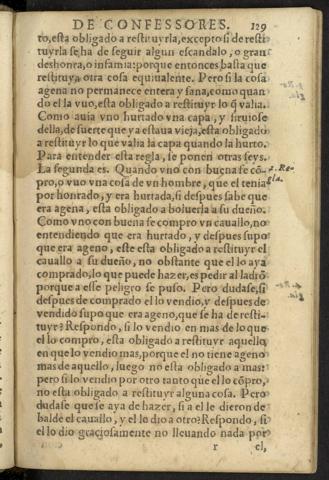 DE CONFESSORES. 129
to, esta obligado a restituyrla, excepto si de resti
tuyrla se ha de seguir algun escandalo, o gran
deshonra, o infamia: porque entonces basta que
restituya otra cosa equiualente. Pero si la cosa
agena no permanece entera y sana, como quan
do el la vuo, esta obligado a restituyr lo q̃ valia.
Como auia vno hurtado vna capa, y siruiose
della, de suerte que ya estaua vieja, esta obligado
a restituyr lo que valia la capa quando la hurto.
Para entender esta regla, se ponen otras seys.
La segunda es. Quando vno con buena fe cõ-
pro, o vuo vna cosa de vn hombre, que el tenia
por honrado, y era hurtada, si despues sabe que
era agena, esta obligado a boluerla a su dueño.
Como vno con buena fe compro vn cauallo, no
entendiendo que era hurtado, y despues supo
que era ageno, este esta obligado a restituyr el
cauallo a su dueño, no obstante que el lo aya
comprado, lo que puede hazer, es pedir al ladrõ
porque a esse peligro se puso. Pero dudase, si
despues de comprado el lo vendio, y despues de
vendido supo que era ageno, que se ha de resti-
tuyr? Respondo, si lo vendio en mas de lo que
el lo compro, esta obligado a restituyr aquello
en que lo vendio mas, porque el no tiene ageno
mas de aquello, luego no esta obligado a mas:
pero si lo vendio por otro tanto que el lo cõpro,
no esta obligado a restituyr alguna cosa. Pero
dudase que se aya de hazer, si a el le dieron de
balde el cauallo, y el lo dio a otro? Respondo, si
el lo dio graciosamente no lleuando nada por
r el,
2. Re-
gla.